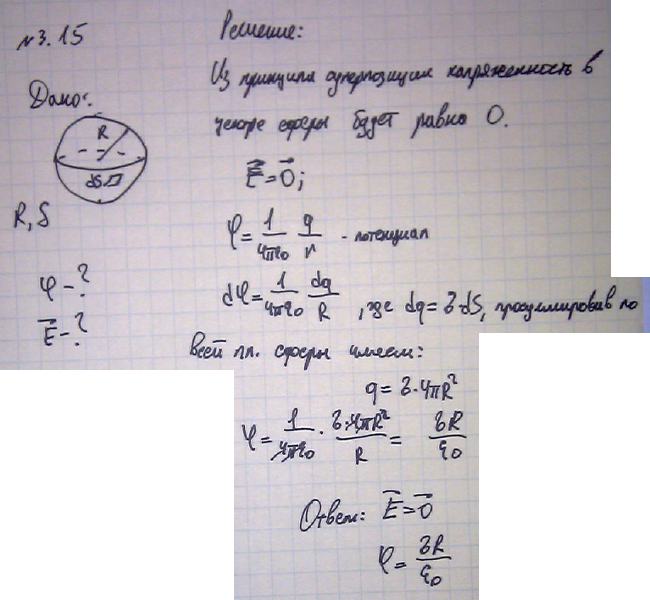 №3.15
Решение:
Дано:
R
dS
R, S
φ - ?
E⃗ - ?
Из принципа суперпозиции напряженность в
центре сферы будет равно 0.
E⃗ = 0⃗;
φ = 1/4πε₀ q/r - потенциал
dφ = 1/4πε₀ dq/R, где dq = σ·dS, просуммировав по
всей пл. сферы имеем:
q = σ·4πR²
φ = 1/4πε₀ · σ·4πR²/R = σR/ε₀
Ответ: E⃗ = 0⃗
φ = σR/ε₀